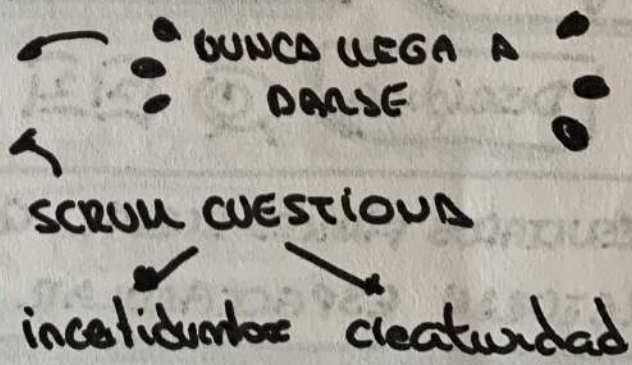 NUNCA LLEGA A
DARSE
SCRUM CUESTIONA
incertidumbre creatividad